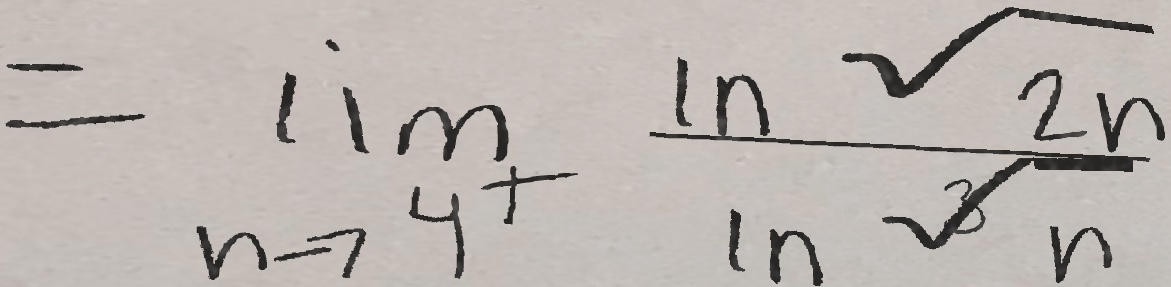 = lim_{n→4^+} \frac{ln √{2n}}{ln ∛{n}}